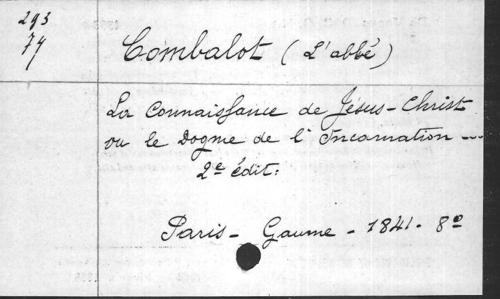 293
74
Combalot (L'abbé)
La Connaissance de Jésus-Christ
ou le Dogme de l'Incarnation ---
2e édit:
Paris - Gaume - 1841. 8o